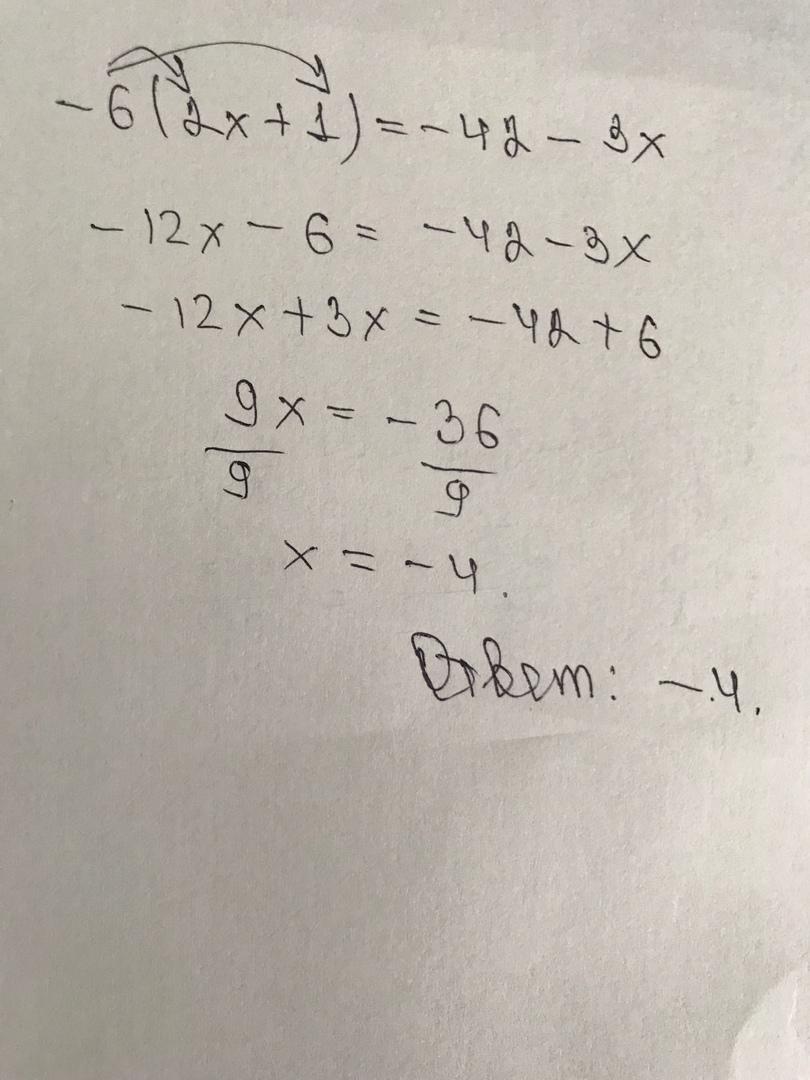 -6(2x+1)=-42-3x
-12x-6=-42-3x
-12x+3x=-42+6
9x=-36
9 9
x=-4.
Ответ: -4.